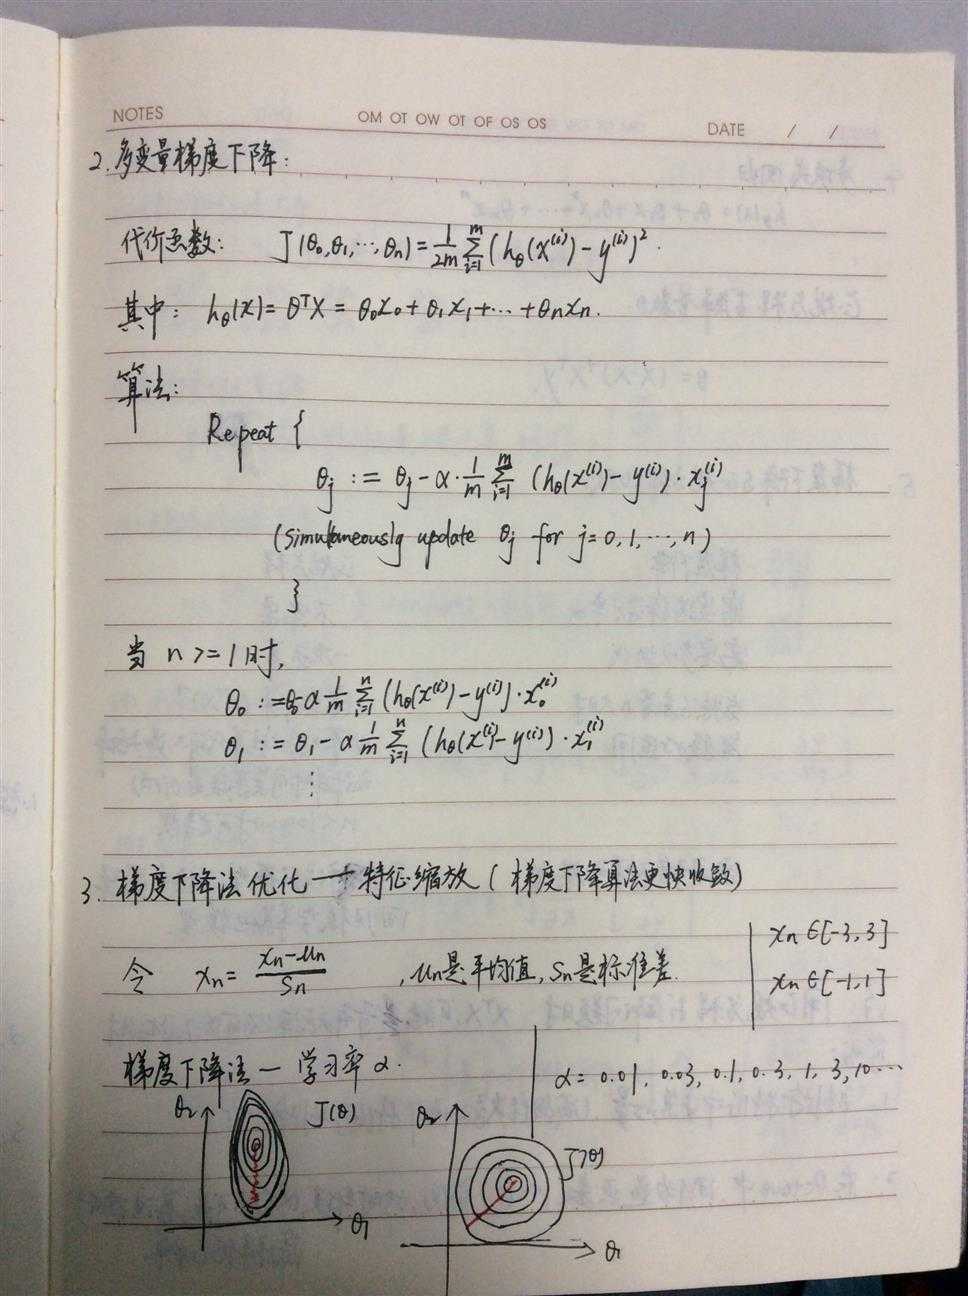 NOTES
OM OT OW OT OF OS OS
DATE / /
2. 多变量梯度下降:
代价函数: J(θ₀,θ₁,⋯,θn)=1/2m ∑_{i=1}^{m} (hθ(x⁽ⁱ⁾)-y⁽ⁱ⁾)².
其中: hθ(x)=θᵀX=θ₀x₀+θ₁x₁+⋯+θnxn.
算法:
Repeat {
θj := θj-α·1/m ∑_{i=1}^{m} (hθ(x⁽ⁱ⁾)-y⁽ⁱ⁾)·xj⁽ⁱ⁾
(simultaneously update θj for j=0,1,⋯,n)
}
当 n>=1时,
θ₀ :=θ₀-α 1/m ∑_{i=1}^{n} (hθ(x⁽ⁱ⁾)-y⁽ⁱ⁾)·x₀⁽ⁱ⁾
θ₁ := θ₁-α 1/m ∑_{i=1}^{n} (hθ(x⁽ⁱ⁾-y⁽ⁱ⁾)·x₁⁽ⁱ⁾
⋮
3. 梯度下降法优化 → 特征缩放 (梯度下降算法更快收敛)
令 xn= (xn-μn)/Sn , μn是平均值, Sn是标准差.
xn∈[-3,3]
xn∈[-1,1]
梯度下降法— 学习率α.
α=0.01, 0.03, 0.1, 0.3, 1, 3, 10⋯
θ₂ J(θ) θ₁
θ₂ J(θ) θ₁